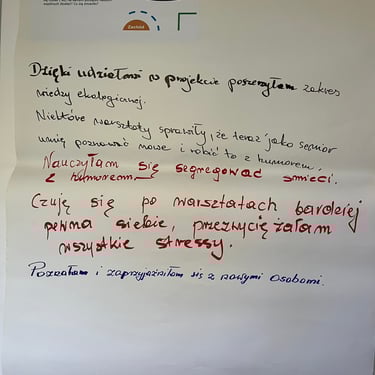 Zachód
Dzięki udziałowi w projekcie poszerzyłam zakres
wiedzy ekologicznej.
Niektóre warsztaty sprawiły, że teraz jako senior
umię poznawać nowe i robić to z humorem.
Nauczyłam się segregować śmieci.
z humorem
Czuję się po warsztatach bardziej
pewna siebie, przezwyciężałam
wszystkie stressy.
Poznałam i zaprzyjaźniłam się z nowymi osobami.